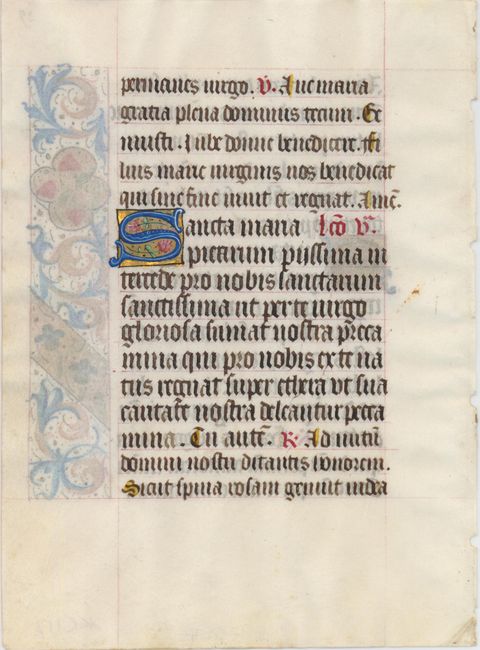 permanes uirgo. V. Aue maria
gratia plena dominus tecum. Ge
nuisti. Iube domne benedicere. Fi
lius marie uirginis nos benedicat
qui sine fine uiuit et regnat. Amē.
Sancta maria lcō V.
pietatum piissima in
tercede pro nobis sanctarum
sanctissima ut per te uirgo
gloriosa sumat nostra preca
mina qui pro nobis ex te na
tus regnat super ethera vt sua
caritate nostra deleantur pecca
mina. Tu autē. R. Ad nutū
domini nostri ditantis honorem.
Sicut spina rosam genuit iudea